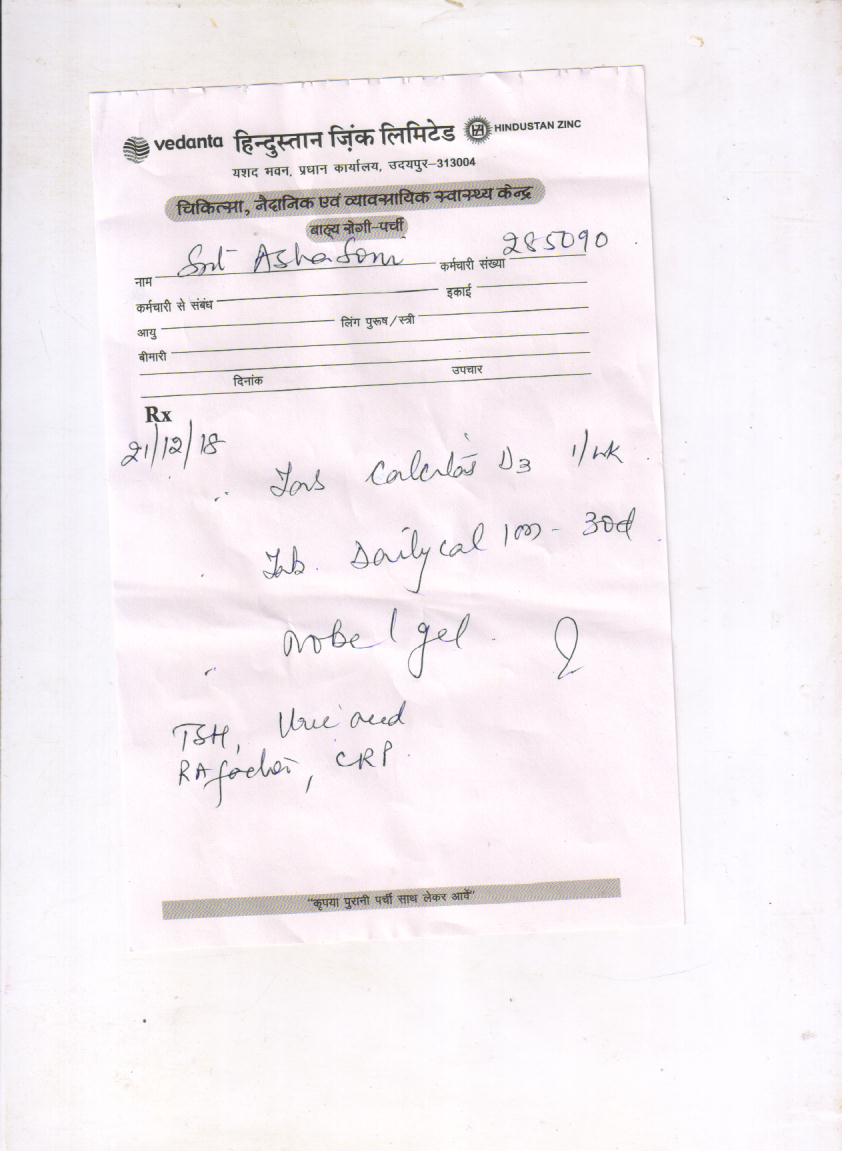 vedanta हिन्दुस्तान ज़िंक लिमिटेड HINDUSTAN ZINC
यशद भवन, प्रधान कार्यालय, उदयपुर–313004
चिकित्सा, नैदानिक एवं व्यावसायिक स्वास्थ्य केन्द्र
बाह्य रोगी-पर्ची
नाम Smt Asha Soni कर्मचारी संख्या 285090
कर्मचारी से संबंध इकाई
आयु लिंग पुरूष/स्त्री
बीमारी
दिनांक उपचार
Rx
21/12/18
D3 1/wk
Tab. Dailycal - 30d
nobel gel
TSH, Uric acid
RA factor, CRP.
"कृपया पुरानी पर्ची साथ लेकर आवें"